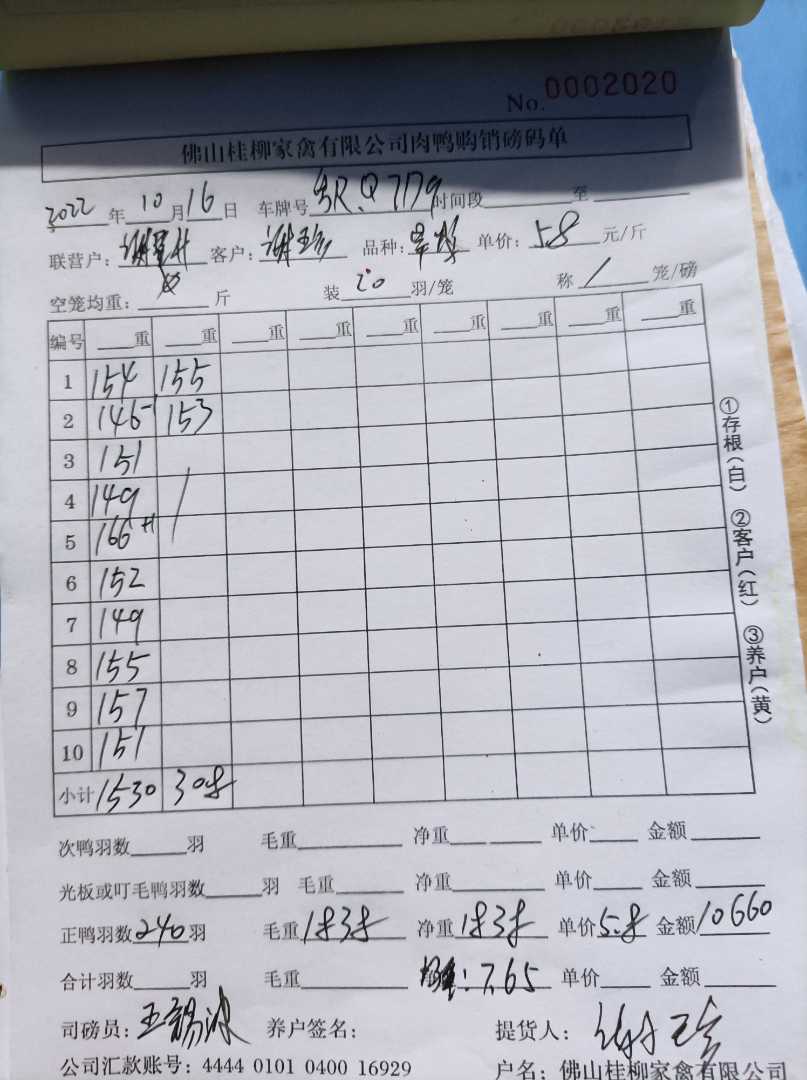 No. 0002020
佛山桂柳家禽有限公司肉鸭购销磅码单
2022年10月16日 车牌号 粤R.Q717g 时间段 至
联营户: 客户: 谢玉珍 品种: 单价: 5.8 元/斤
空笼均重: 斤 装 20 羽/笼 称 1 笼/磅
编号 重 重 重 重 重 重 重 重 重
1 154 155
2 145 153
3 151
4 149
5 166
6 152
7 149
8 155
9 157
10 151
小计 1530 308
次鸭羽数 羽 毛重 净重 单价 金额
光板或叮毛鸭羽数 羽 毛重 净重 单价 金额
正鸭羽数 240 羽 毛重 1838 净重 1838 单价 5.8 金额 10660
合计羽数 羽 毛重 : 7.65 单价 金额
司磅员: 王锡波 养户签名: 提货人:
公司汇款账号: 4444 0101 0400 16929 户名: 佛山桂柳家禽有限公司
①存根(白) ②客户(红) ③养户(黄)